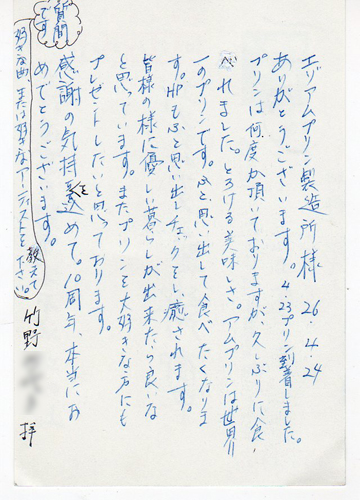 エゾアムプリン製造所様 26.4.24
ありがとうございます。4.23プリン到着しました。
プリンは何度か頂いておりますが、久しぶりに食し
されました。とろける美味しさ。アムプリンは世界
一のプリンです。ふと思い出して食べたくなりま
す。HPもふと思い出しチェックをし、癒されます。
皆様の様に優しい暮らしが出来たら良いな
と思っています。またプリンを大好きな方にも
プレゼントしたいと思っております。
感謝の気持ちを込めて。10周年、本当にお
めでとうございます。
竹野 拝
質問です
好きな曲、または好きなアーティストを教えてください。